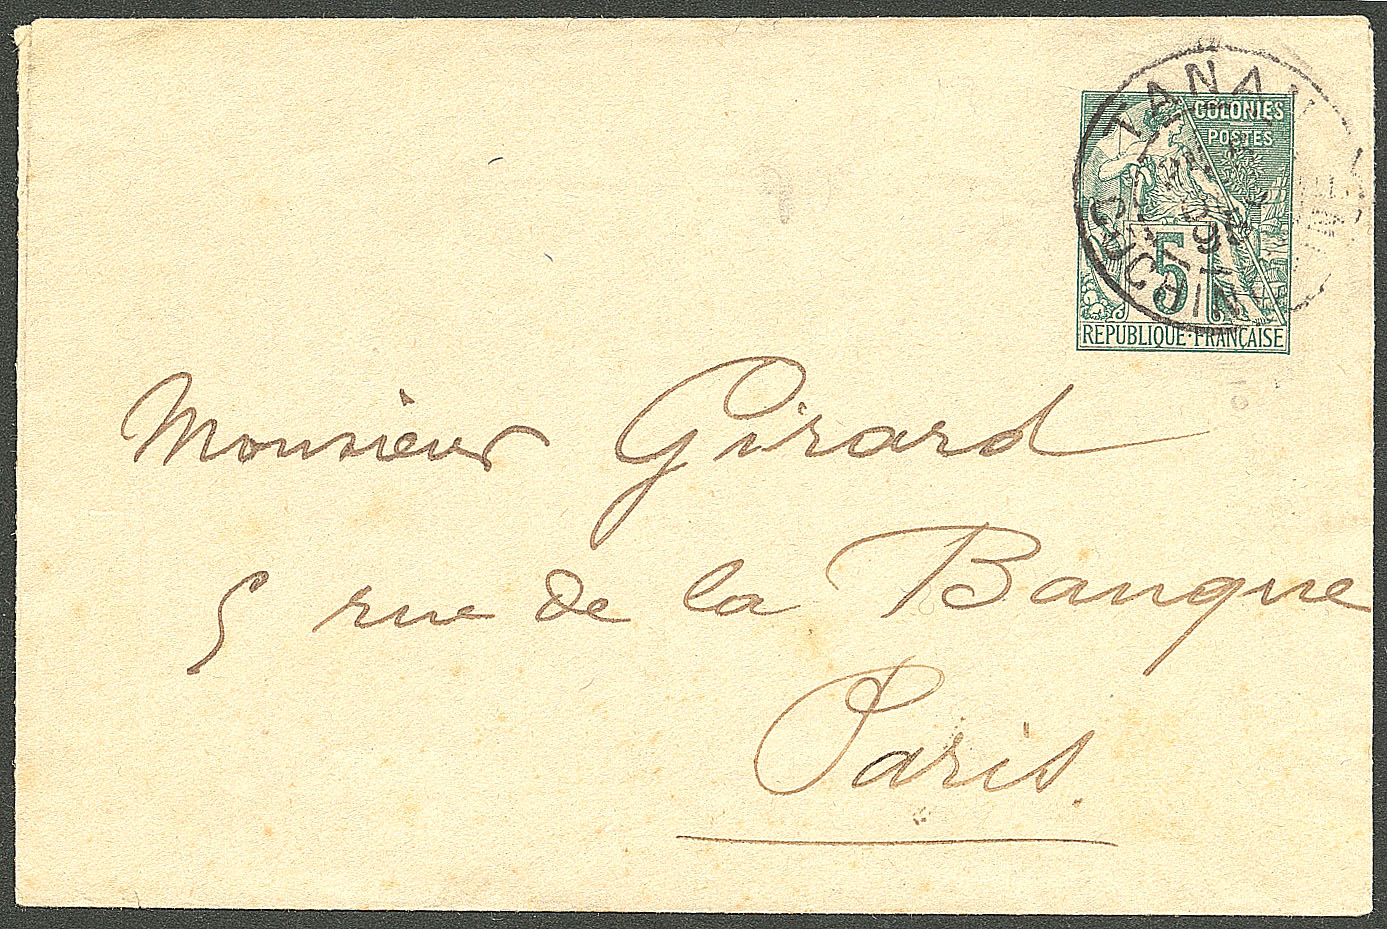 COLONIES
POSTES
5
REPUBLIQUE·FRANÇAISE
Monsieur Girard
5 rue de la Banque
Paris.